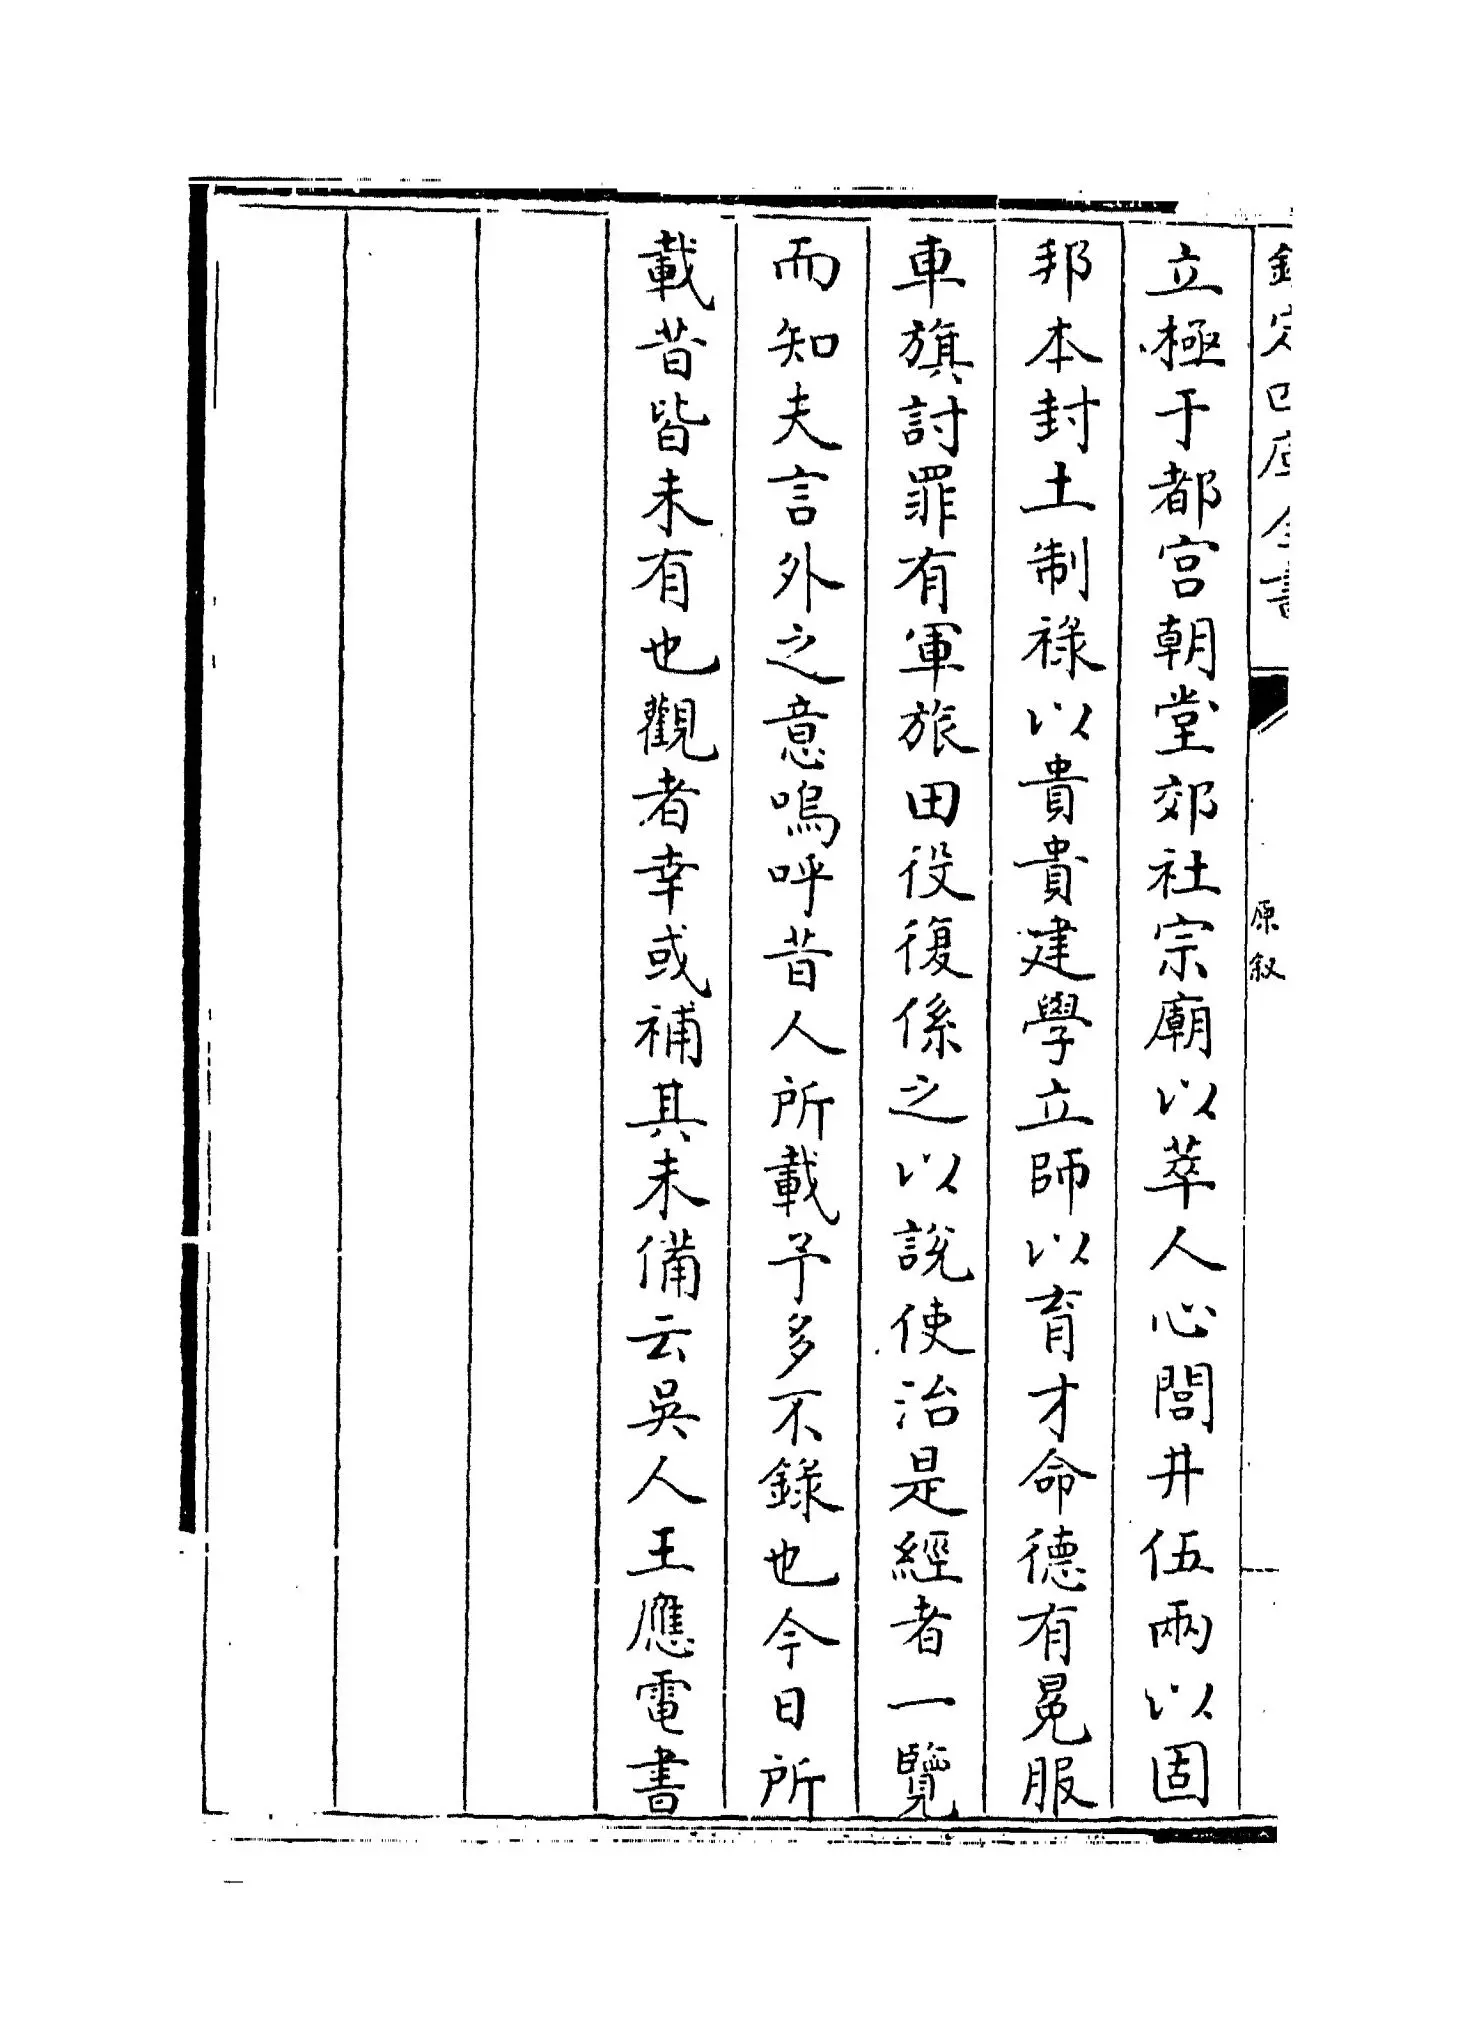 欽定四庫全書
原敘
立極于都宮朝堂郊社宗廟以萃人心閭井伍兩以固
邦本封土制祿以貴貴建學立師以育才命德有冕服
車旗討罪有軍旅田役復係之以說使治是經者一覽
而知夫言外之意嗚呼昔人所載予多不錄也今日所
載昔皆未有也觀者幸或補其未備云吳人王應電書